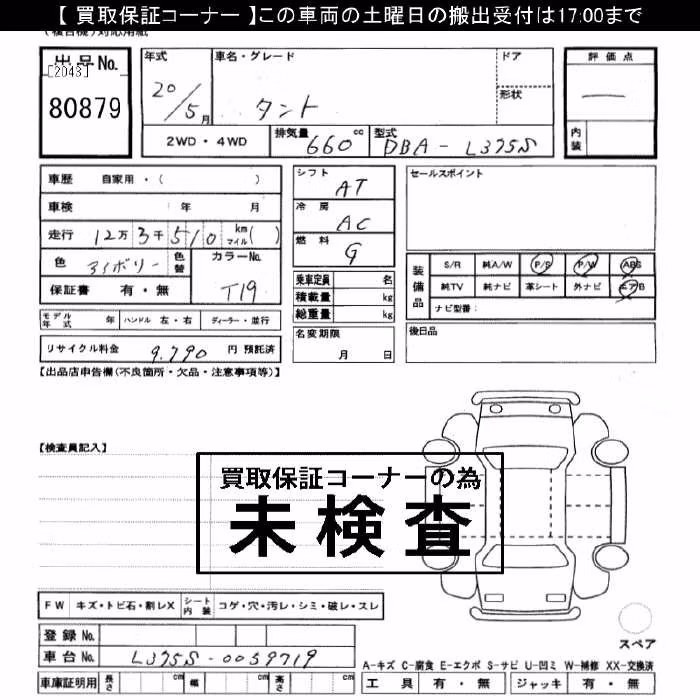 【 買取保証コーナー 】この車両の土曜日の搬出受付は17:00まで
(複合機)対応用紙
出品No. 年式 車名・グレード ドア 評価点
[2043]
80879 20/5月 タント 形状
2WD・4WD 排気量 660 cc 型式 DBA - L375S 内装
車歴 自家用・( ) シフト AT セールスポイント
車検 年 月 冷房 AC
走行 12万3千510 km マイル( ) 燃料 G
色 アイボリー 色替 カラーNo. T19
装備品 S/R 純A/W P/S P/W ABS
保証書 有・無 乗車定員 名 純TV 純ナビ 革シート 外ナビ エアB
積載量 kg ナビ型番:
モデル年式 年 ハンドル 左・右 ディーラー・並行 総重量 kg
リサイクル料金 9,790 円 預託済 名変期限 月 日 後日品
【出品店申告欄(不良箇所・欠品・注意事項等)】
【検査員記入】
買取保証コーナーの為
未検査
FW キズ・トビ石・割レX シート内装 コゲ・穴・汚レ・シミ・破レ・スレ
登録No. スペア
車台No. L375S-0059719
A-キズ C-腐食 E-エクボ S-サビ U-凹ミ W-補修 XX-交換済
車庫証明用 長さ cm 幅 cm 高さ cm 工具 有・無 ジャッキ 有・無